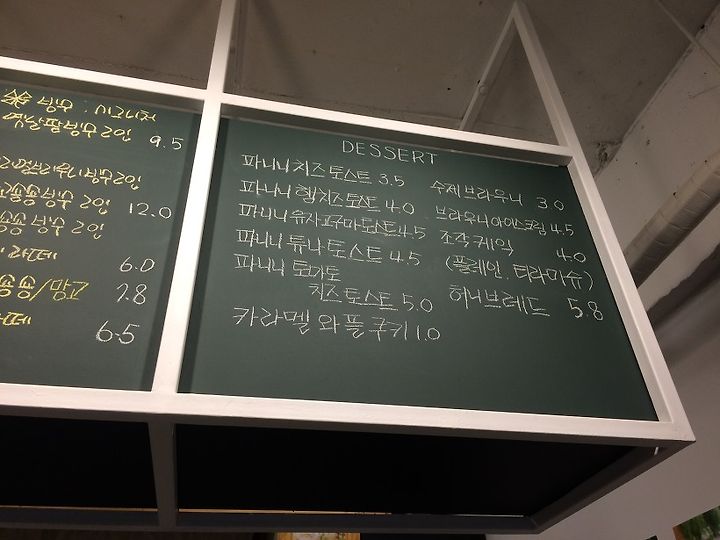 솔솔 빙수 : 시그니처
옛날팥빙수 2인 9.5
빙수 2인
빙수 2인 12.0
빙수 2인
라떼 6.0
/망고 7.8
6.5
DESSERT
파니니 치즈 토스트 3.5
파니니 햄치즈토스트 4.0
파니니 유자고구마토스트 4.5
파니니 튜나 토스트 4.5
파니니 토마토
치즈토스트 5.0
카라멜 와플쿠키 1.0
수제 브라우니 3.0
브라우니아이스크림 4.5
조각케익 4.0
(플레인, 티라미슈)
허니브레드 5.8